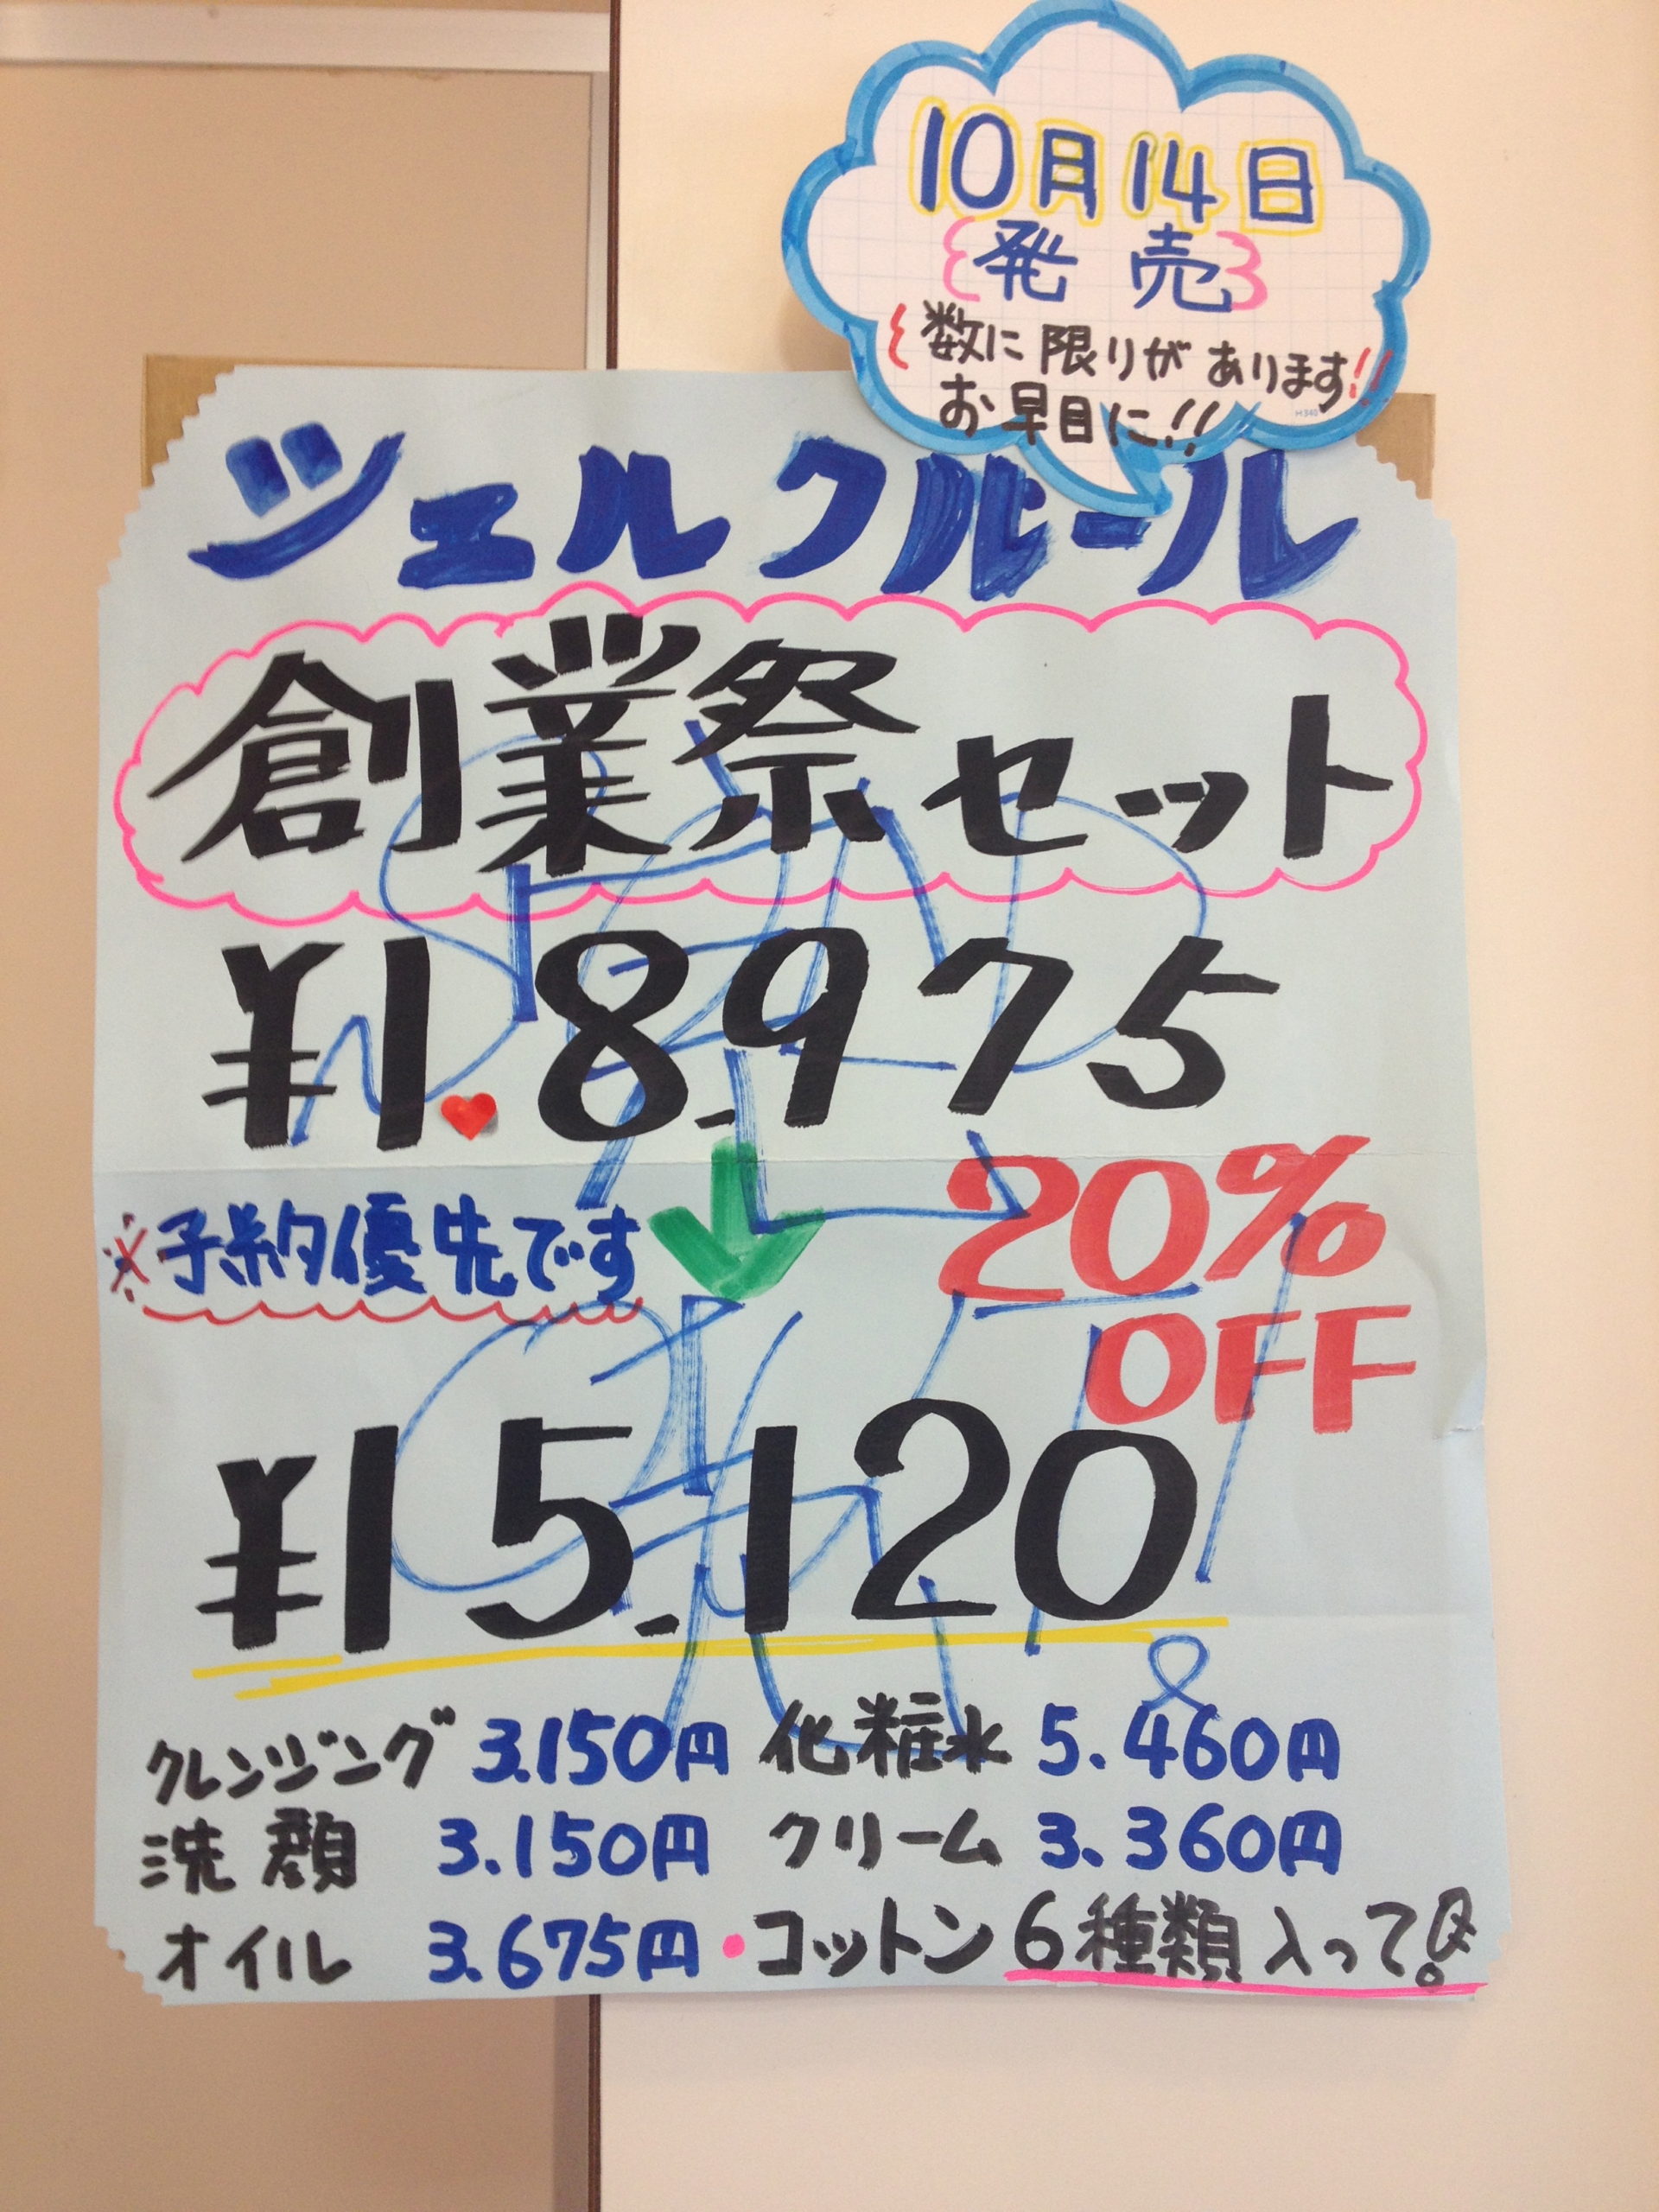 10月14日
発売
数に限りがあります!!
お早目に!!
シェルクルール
創業祭セット
¥1.8.975
※予約優先です
20%
OFF
¥15.120
クレンジング 3.150円 化粧水 5.460円
洗顔 3.150円 クリーム 3.360円
オイル 3.675円 ・コットン 6種類入って!